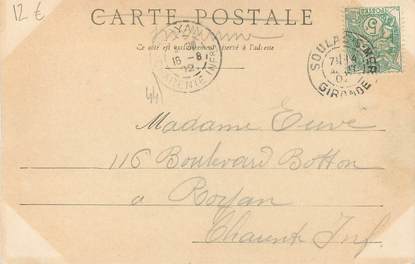 12 €
CARTE POSTALE
Ce côté est exclusivement réservé à l'adresse
ROYAN
16 - 8
02
SOULAC-S-MER
02
GIRONDE
5
44
Madame Euvé
116 Boulevard Botton
a Royan
Charente Inf.